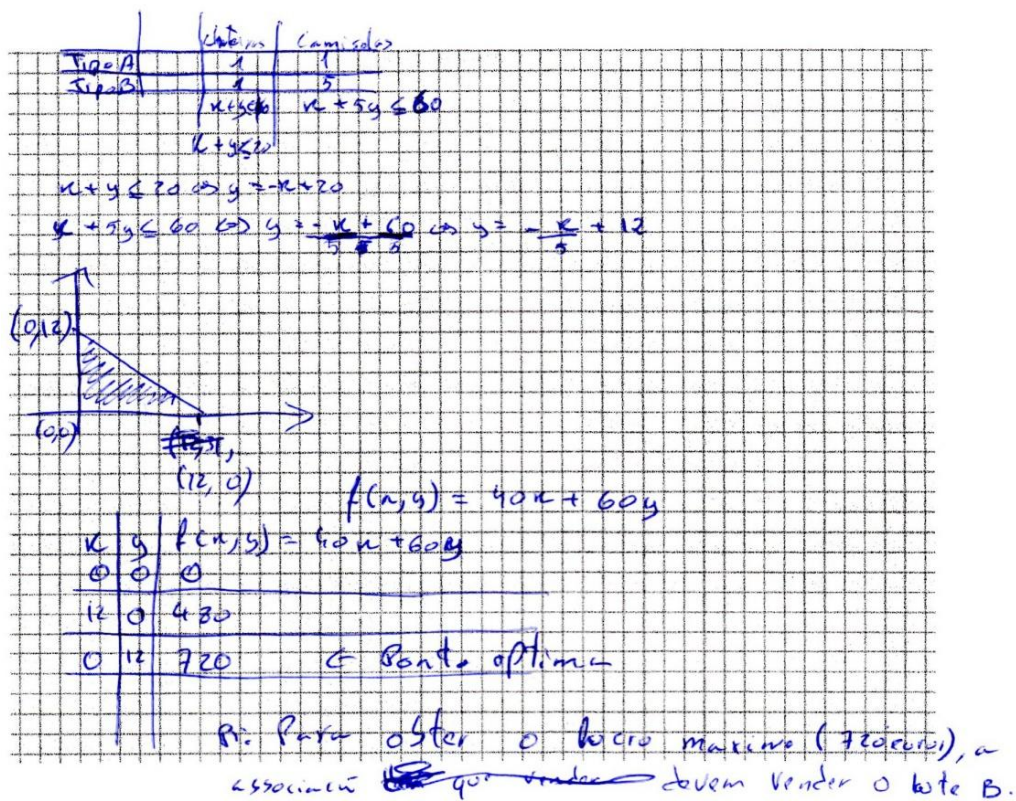 Camisolas
Tipo A 1 1
Tipo B 1 5
x + 5y ≤ 60
x + y ≤ 20
x + y ≤ 20 ⇔ y = -x + 20
x + 5y ≤ 60 ⇔ y = -x + 60 / 5 5 ⇔ y = -x/5 + 12
(0,12)
(0,0)
(12, 0)
f(x,y) = 40x + 60y
x y f(x,y) = 40x + 60y
0 0 0
12 0 480
0 12 720 ← Ponto optimo
R: Para obter o lucro maximo (720 euros), a
associação devem vender o lote B.